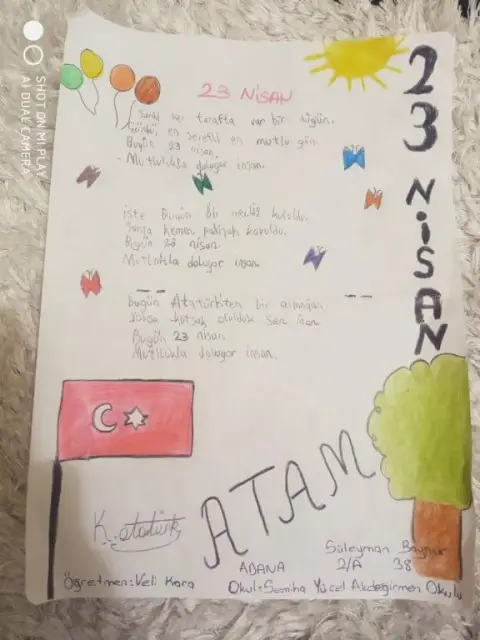 23 NİSAN
Sanki her tarafta var bir düğün.
Çünkü, en şerefli en mutlu gün.
Bugün 23 nisan.
Mutlulukla doluyor insan.
işte Bugün Bir meclis kuruldu.
Sonra Hemen padişah kovuldu.
Bugün 23 nisan
Mutlulukla doluyor insan
bugün Atatürk'ten bir armağan
Yoksa tutsak olurduk sen inan
Bugün 23 nisan
Mutlulukla doluyor insan.
23 NİSAN
ATAM
K. atatürk
Süleyman
ADANA 2/A 38
Öğretmen: Veli Kara
Okul: Semiha Yücel Akdeğirmen Okulu
SHOT ON MI PLAY
AI DUAL CAMERA